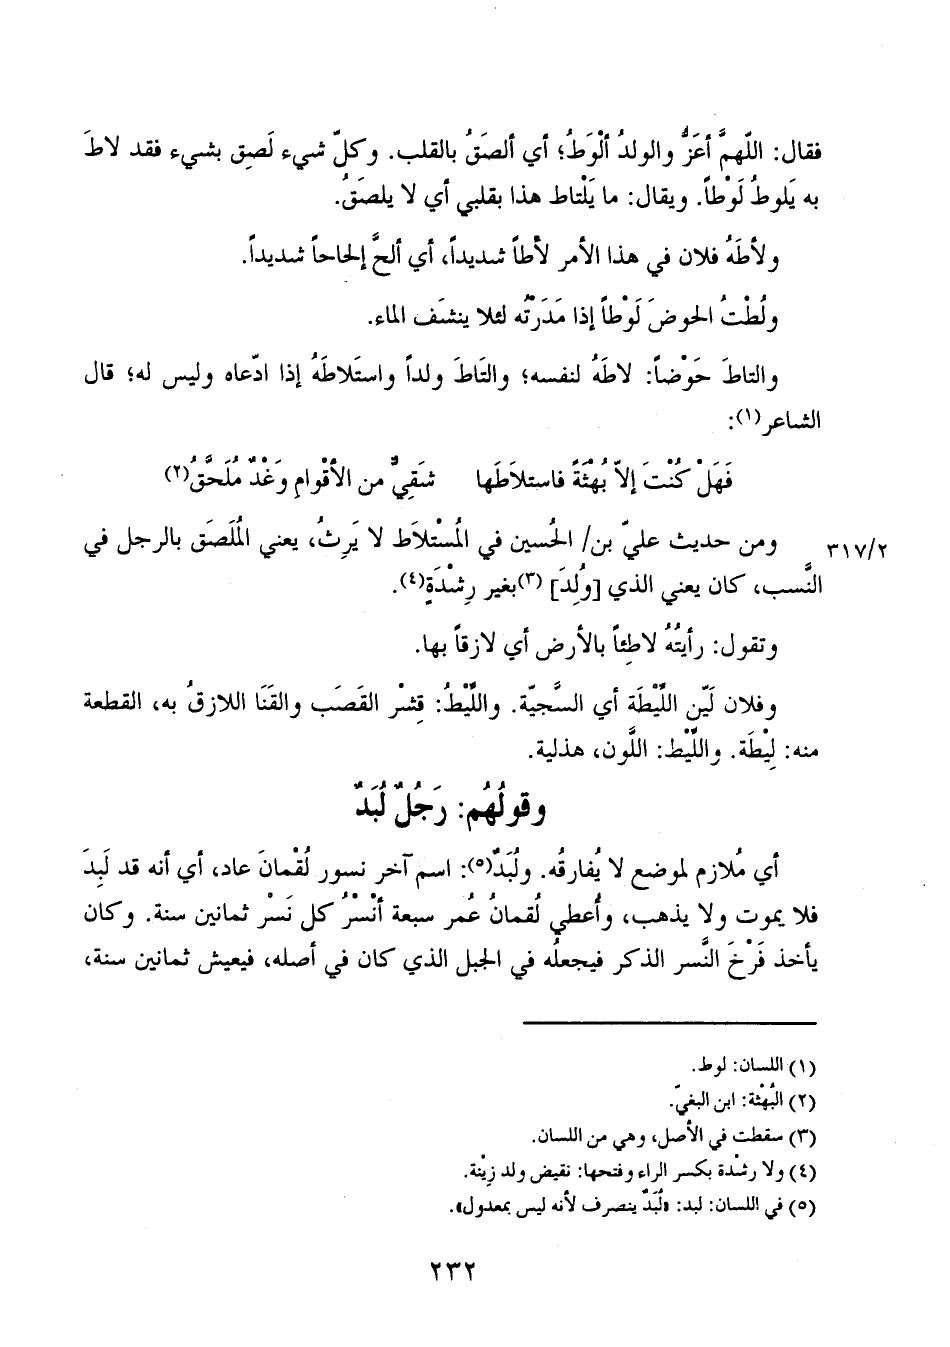 فقال: اللّهمَّ أعَزُّ والولدُ ألْوَطُ؛ أي ألصَقُ بالقلب. وكلّ شيء لَصِق بشيء فقد لاطَ
به يَلوطُ لَوْطاً. ويقال: ما يَلْتاط هذا بقلبي أي لا يلصَقُ.
ولأطَهُ فلان في هذا الأمر لأطاً شديداً، أي ألحَّ إلحاحاً شديداً.
ولُطْتُ الحوضَ لَوْطاً إذا مَدَرْتُه لئلا ينشَف الماء.
والتاطَ حَوْضاً: لاطَهُ لنفسه؛ والتَاطَ ولداً واستَلاطَهُ إذا ادّعاه وليس له؛ قال
الشاعر(١):
فَهَلْ كُنْتَ إلاّ بُهْثَةً فاستلاَطَها شَقِيٌّ من الأقْوامِ وَغْدٌ مُلَحَّقُ(٢)
٣١٧/٢ ومن حديث عليّ بن/ الحُسين في المُسْتلاَط لا يَرِثُ، يعني المُلَصَق بالرجل في
النَّسب، كان يعني الذي [وُلِدَ] (٣)بغير رِشْدَةٍ(٤).
وتقول: رأيتُهُ لاطِئاً بالأرض أي لازقاً بها.
وفلان لَيّن اللِّيْطَة أي السَّجيّة. واللِّيْطُ: قِشْر القَصَب والقَنَا اللازقُ به، القطعة
منه: لِيْطَة. واللِّيْط: اللَّون، هذلية.
وقولُهُم: رَجُلٌ لُبَدٌ
أي مُلازم لموضع لا يُفارقُه. ولُبَدٌ(٥): اسم آخر نسور لُقْمانَ عاد، أي أنه قد لَبِدَ
فلا يموت ولا يذهب، وأُعطي لُقمانُ عُمر سبعة أنْسُرٍ كل نَسْر ثمانين سنة. وكان
يأخذ فَرْخَ النَّسر الذكر فيجعلُه في الجبل الذي كان في أصله، فيعيش ثمانين سنة،
(١) اللسان: لوط.
(٢) البُهْثة: ابن البغيّ.
(٣) سقطت في الأصل، وهي من اللسان.
(٤) ولا رشْدة بكسر الراء وفتحها: نقيض ولد زِيْنة.
(٥) في اللسان: لبد: «لُبَدٌ ينصرف لأنه ليس بمعدول».
٢٣٢